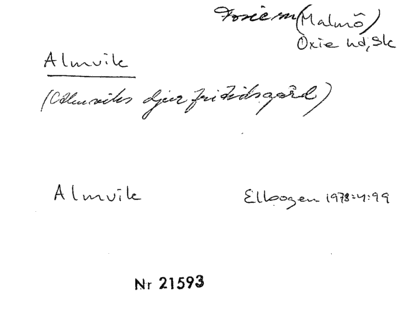 Fosie sn (Malmö)
Oxie hd, Sk
Almvik
(Almviks djurfritidsgård)
Almvik Elbogen 1978:4:99
Nr 21593